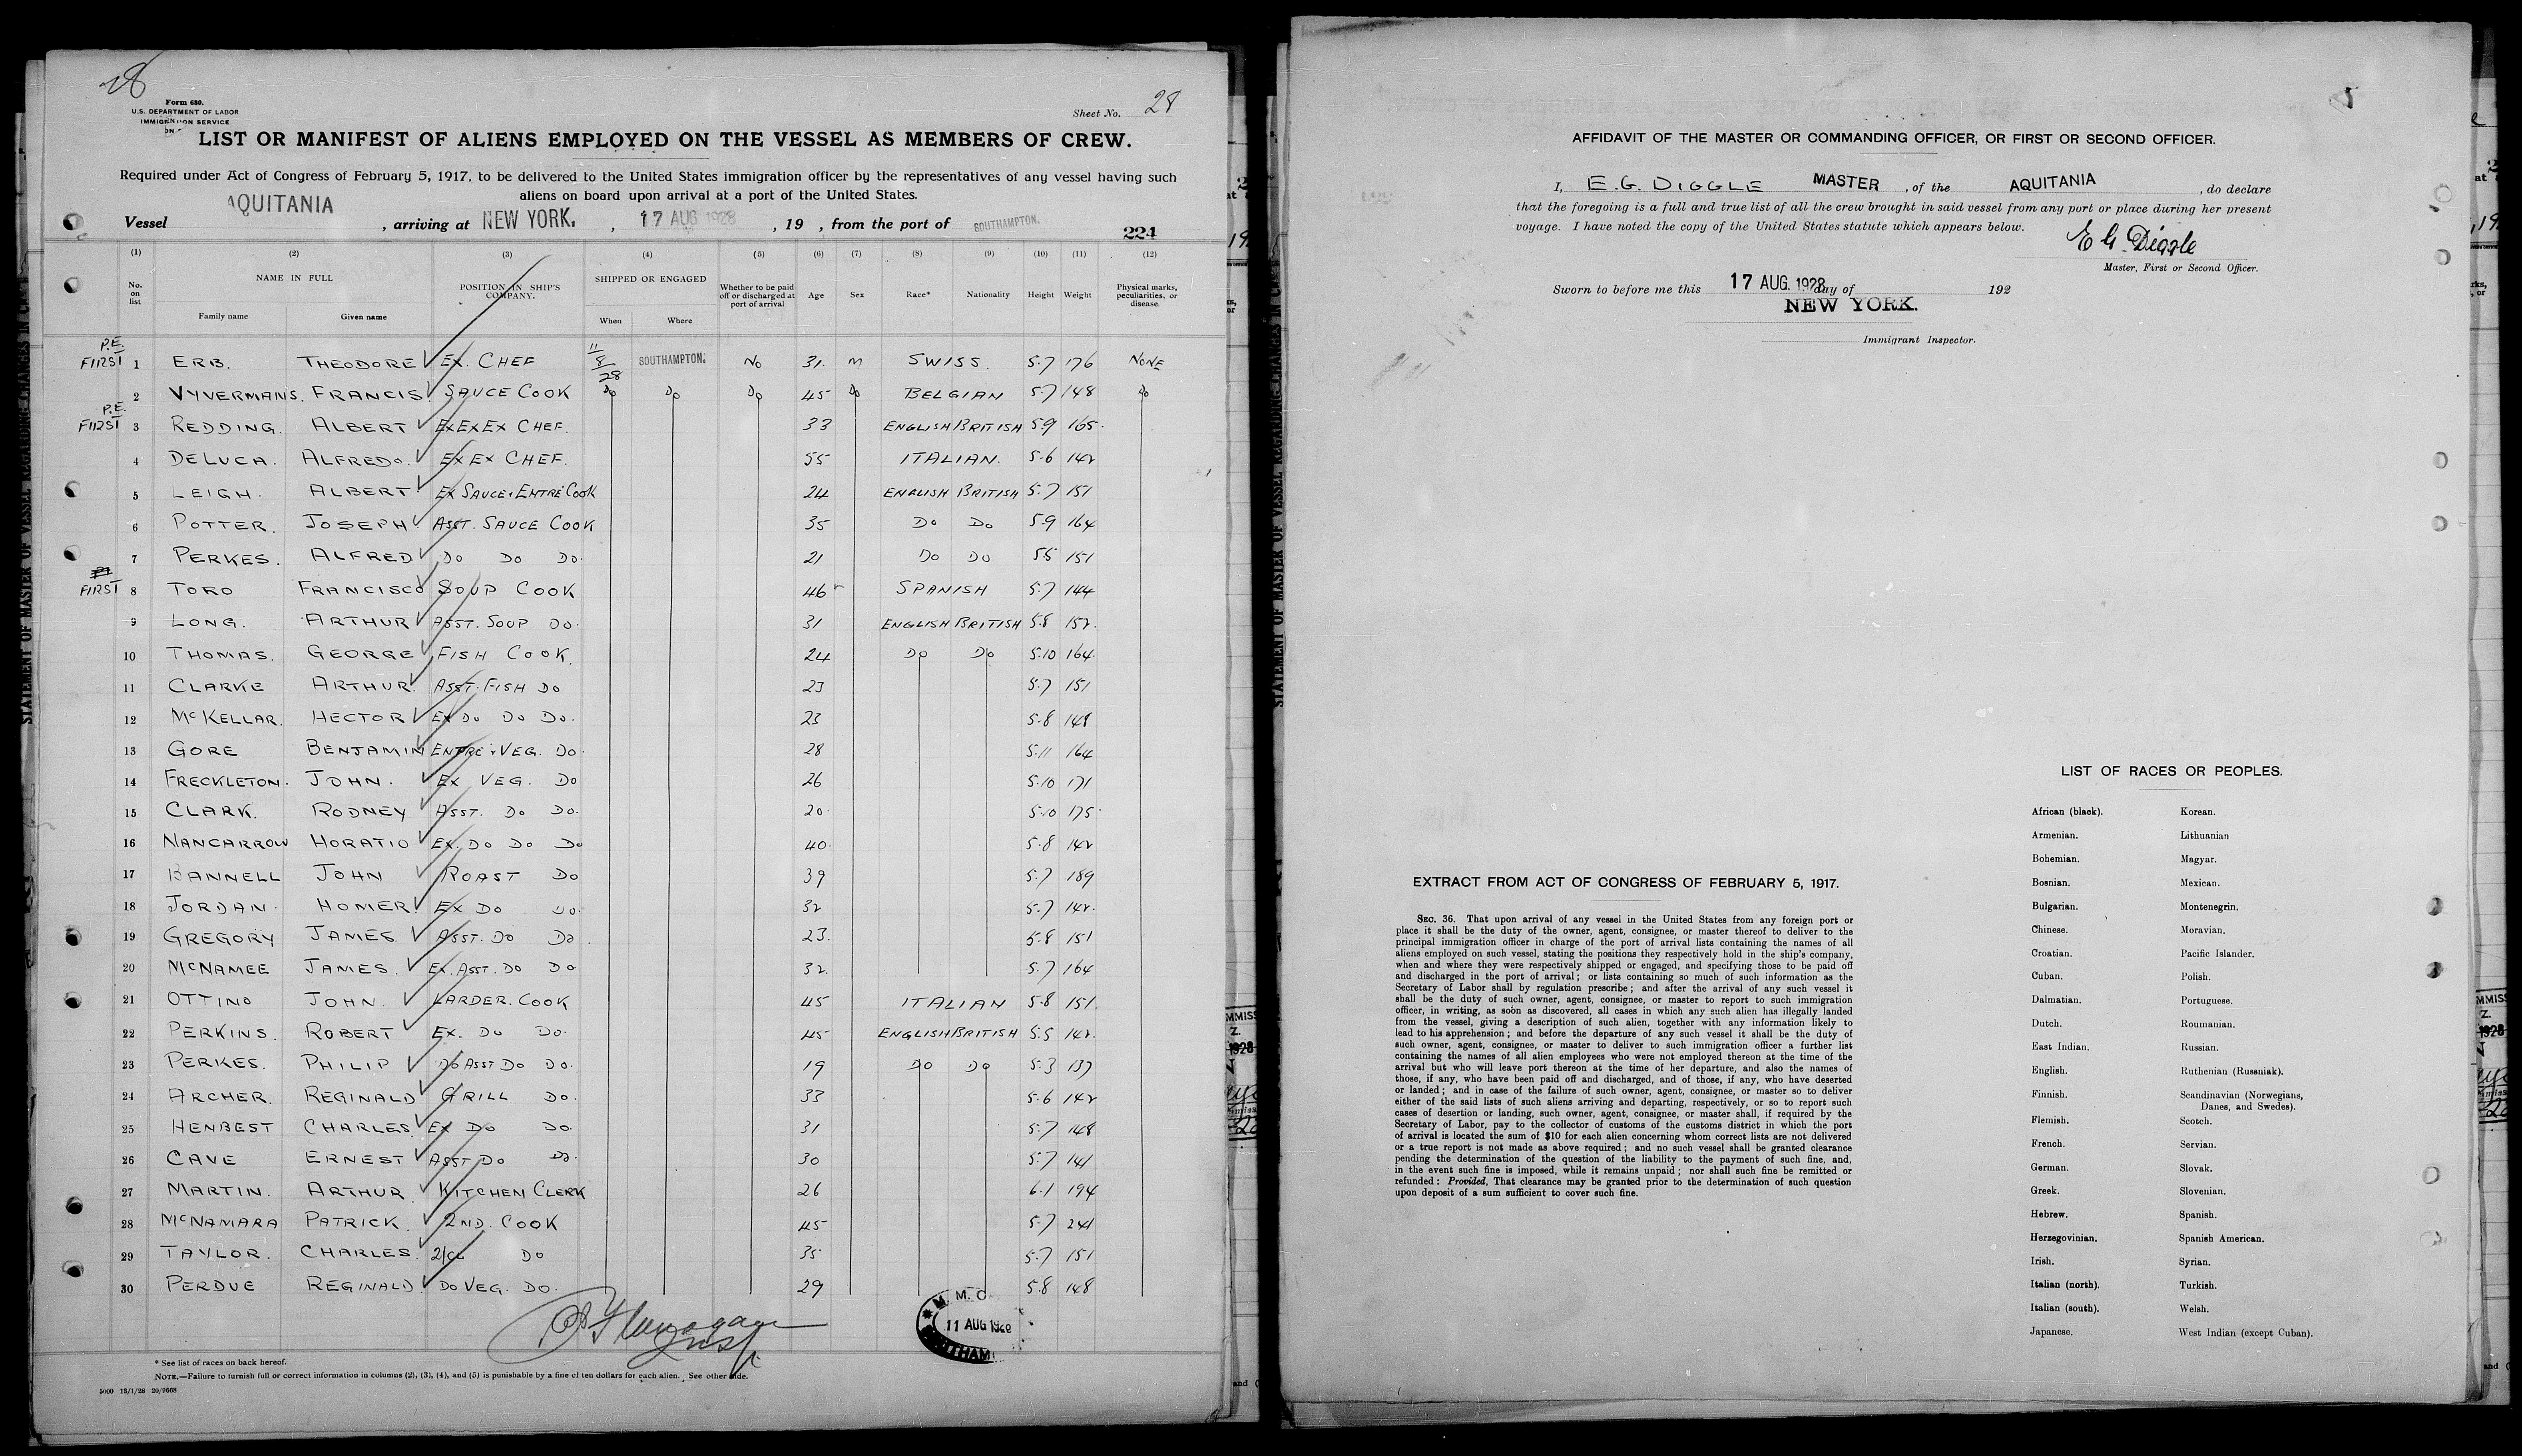 28
Form 680.
U.S. DEPARTMENT OF LABOR
IMMIGRATION SERVICE
Sheet No. 28
LIST OR MANIFEST OF ALIENS EMPLOYED ON THE VESSEL AS MEMBERS OF CREW.
Required under Act of Congress of February 5, 1917, to be delivered to the United States immigration officer by the representatives of any vessel having such
aliens on board upon arrival at a port of the United States.
Vessel AQUITANIA , arriving at NEW YORK. , 17 AUG 1928 , 19 , from the port of SOUTHAMPTON.
224
(1) (2) (3) (4) (5) (6) (7) (8) (9) (10) (11) (12)
No. on list NAME IN FULL Family name Given name POSITION IN SHIP'S COMPANY. SHIPPED OR ENGAGED When Where Whether to be paid off or discharged at port of arrival Age Sex Race* Nationality Height Weight Physical marks, peculiarities, or disease.
P.E. FIRST 1 ERB. THEODORE EX. CHEF 11/8/28 SOUTHAMPTON. No 31. M SWISS. 5.7 176 NONE
2 VYVERMANS. FRANCIS SAUCE COOK Do Do Do 45 Do BELGIAN 5.7 148 Do
P.E. FIRST 3 REDDING. ALBERT EX EX EX CHEF. 33 ENGLISH BRITISH 5.9 165.
4 DELUCA. ALFREDO. EX EX CHEF. 55 ITALIAN. 5.6 142
5 LEIGH. ALBERT EX SAUCE & ENTRE COOK 24 ENGLISH BRITISH 5.7 151
6 POTTER. JOSEPH ASST. SAUCE COOK 35 Do Do 5.9 164
7 PERKES. ALFRED Do Do Do. 21 Do Do 5.5 151
FIRST 8 TORO FRANCISCO SOUP COOK 46 SPANISH 5.7 144
9 LONG. ARTHUR ASST. SOUP Do. 31 ENGLISH BRITISH 5.8 152.
10 THOMAS. GEORGE FISH COOK. 24 Do Do 5.10 164.
11 CLARKE ARTHUR. ASST. FISH Do 23 5.7 151
12 McKELLAR. HECTOR EX Do Do Do. 23 5.8 148
13 GORE BENJAMIN ENTRE & VEG. Do. 28 5.11 164
14 FRECKLETON. JOHN. EX VEG. Do 26 5.10 171
15 CLARK. RODNEY ASST. Do Do. 20. 5.10 175
16 NANCARROW HORATIO EX. Do Do Do 40. 5.8 142
17 BANNELL JOHN ROAST Do 39 5.7 189
18 JORDAN. HOMER EX Do Do. 32 5.7 142.
19 GREGORY JAMES ASST. Do Do. 23. 5.8 151
20 McNAMEE JAMES. EX. ASST. Do Do 32. 5.7 164
21 OTTINO JOHN. LARDER. COOK 45 ITALIAN 5.8 151.
22 PERKINS. ROBERT EX. Do Do. 45 ENGLISH BRITISH 5.5 142.
23 PERKES. PHILIP Do ASST Do Do. 19 Do Do 5.3 137
24 ARCHER. REGINALD GRILL Do. 33 5.6 142
25 HENBEST CHARLES EX Do Do. 31 5.7 148
26 CAVE ERNEST ASST Do Do. 30 5.7 141
27 MARTIN. ARTHUR KITCHEN CLERK 26 6.1 194
28 McNAMARA PATRICK. 2ND. COOK 45 5.7 241
29 TAYLOR. CHARLES. 2/CL Do 35 5.7 151
30 PERDUE REGINALD. Do VEG. Do. 29 5.8 148
Flanagan Insp
M. M. O. 11 AUG 1928
* See list of races on back hereof.
NOTE.—Failure to furnish full or correct information in columns (2), (3), (4), and (5) is punishable by a fine of ten dollars for each alien. See other side.
5000 13/1/28 20/9668
AFFIDAVIT OF THE MASTER OR COMMANDING OFFICER, OR FIRST OR SECOND OFFICER.
I, E.G. DIGGLE MASTER , of the AQUITANIA , do declare
that the foregoing is a full and true list of all the crew brought in said vessel from any port or place during her present
voyage. I have noted the copy of the United States statute which appears below.
E G. Diggle
Master, First or Second Officer.
Sworn to before me this 17 AUG. 1928 day of 192
NEW YORK.
Immigrant Inspector.
EXTRACT FROM ACT OF CONGRESS OF FEBRUARY 5, 1917.
SEC. 36. That upon arrival of any vessel in the United States from any foreign port or
place it shall be the duty of the owner, agent, consignee, or master thereof to deliver to the
principal immigration officer in charge of the port of arrival lists containing the names of all
aliens employed on such vessel, stating the positions they respectively hold in the ship's company,
when and where they were respectively shipped or engaged, and specifying those to be paid off
and discharged in the port of arrival; or lists containing so much of such information as the
Secretary of Labor shall by regulation prescribe; and after the arrival of any such vessel it
shall be the duty of such owner, agent, consignee, or master to report to such immigration
officer, in writing, as soon as discovered, all cases in which any such alien has illegally landed
from the vessel, giving a description of such alien, together with any information likely to
lead to his apprehension; and before the departure of any such vessel it shall be the duty of
such owner, agent, consignee, or master to deliver to such immigration officer a further list
containing the names of all alien employees who were not employed thereon at the time of the
arrival but who will leave port thereon at the time of her departure, and also the names of
those, if any, who have been paid off and discharged, and of those, if any, who have deserted
or landed; and in case of the failure of such owner, agent, consignee, or master so to deliver
either of the said lists of such aliens arriving and departing, respectively, or so to report such
cases of desertion or landing, such owner, agent, consignee, or master shall, if required by the
Secretary of Labor, pay to the collector of customs of the customs district in which the port
of arrival is located the sum of $10 for each alien concerning whom correct lists are not delivered
or a true report is not made as above required; and no such vessel shall be granted clearance
pending the determination of the question of the liability to the payment of such fine, and,
in the event such fine is imposed, while it remains unpaid; nor shall such fine be remitted or
refunded: Provided, That clearance may be granted prior to the determination of such question
upon deposit of a sum sufficient to cover such fine.
LIST OF RACES OR PEOPLES.
African (black). Korean.
Armenian. Lithuanian
Bohemian. Magyar.
Bosnian. Mexican.
Bulgarian. Montenegrin.
Chinese. Moravian.
Croatian. Pacific Islander.
Cuban. Polish.
Dalmatian. Portuguese.
Dutch. Roumanian.
East Indian. Russian.
English. Ruthenian (Russniak).
Finnish. Scandinavian (Norwegians,
Danes, and Swedes).
Flemish. Scotch.
French. Servian.
German. Slovak.
Greek. Slovenian.
Hebrew. Spanish.
Herzegovinian. Spanish American.
Irish. Syrian.
Italian (north). Turkish.
Italian (south). Welsh.
Japanese. West Indian (except Cuban).